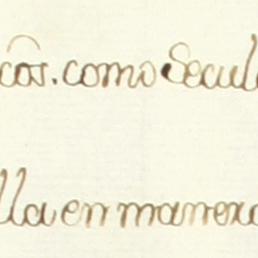 cos̃. como Secul
lla en manera